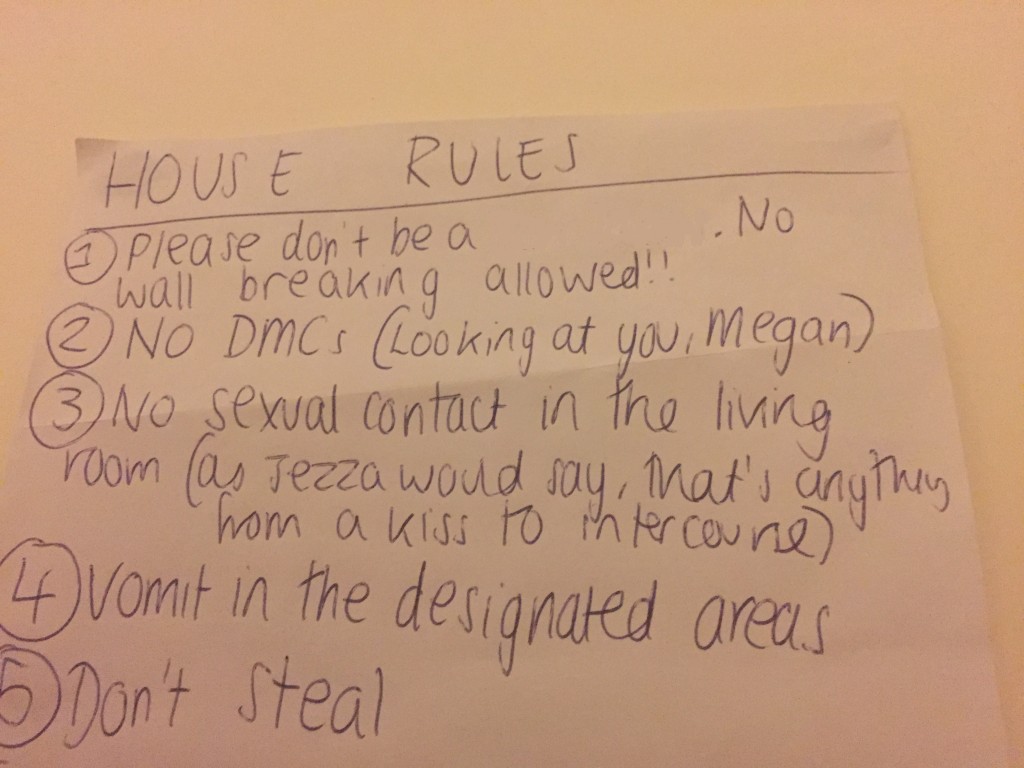 HOUSE RULES
① Please don't be a . No
wall breaking allowed!!
② NO DMCs (Looking at you, Megan)
③ No sexual contact in the living
room (as Jezza would say, that's anything
from a kiss to intercourse)
④ Vomit in the designated areas
⑤ Don't steal